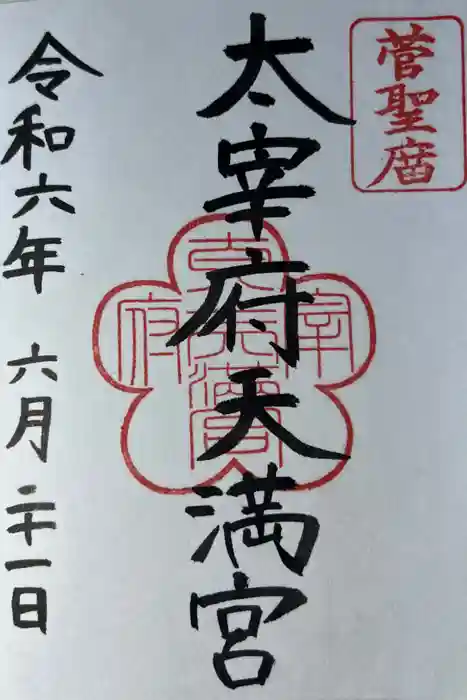 菅聖庿
太宰府天満宮
令和六年 六月二十一日